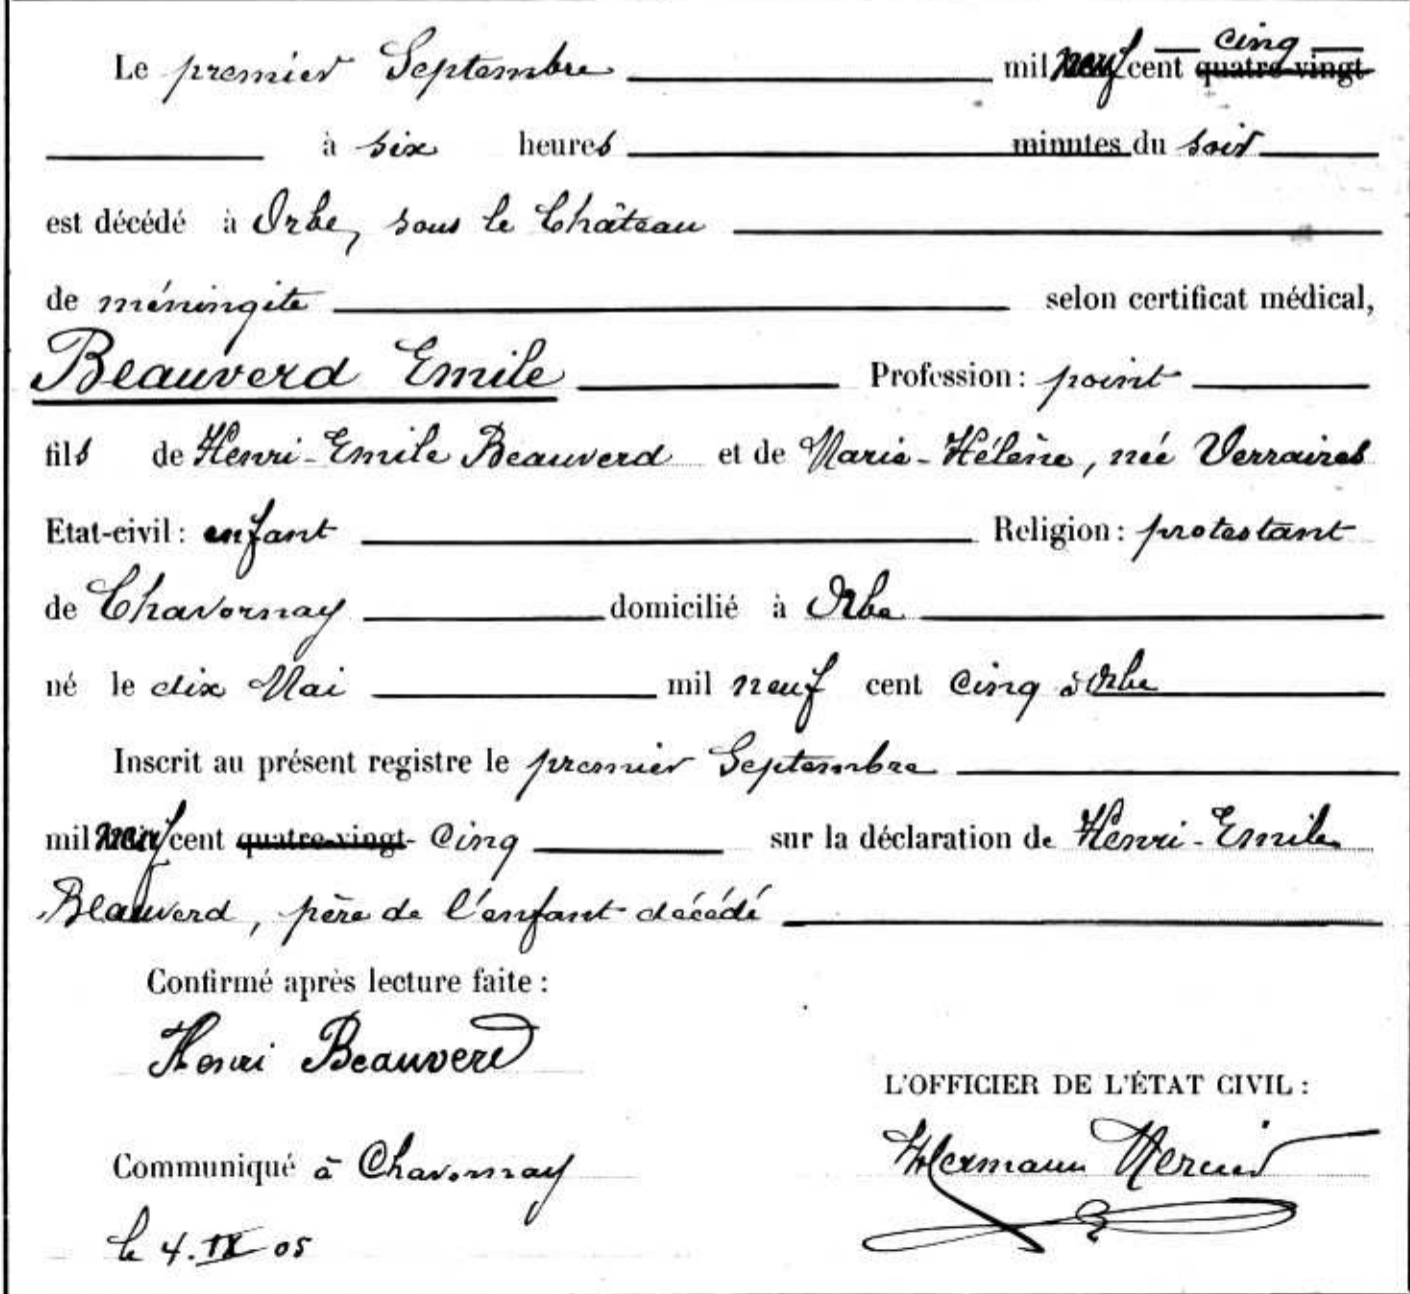 Le premier Septembre mil neuf cent quatre-vingt cinq
à six heures minutes du soir
est décédé à Orbe, sous le Château
de méningite selon certificat médical,
Beauverd Emile Profession : point
fils de Henri-Emile Beauverd et de Marie-Hélène, née Verraires
Etat-civil : enfant Religion : protestant
de Chavornay domicilié à Orbe
né le dix Mai mil neuf cent cinq à Orbe
Inscrit au présent registre le premier Septembre
mil neuf cent quatre-vingt- cinq sur la déclaration de Henri-Emile
Beauverd, père de l'enfant décédé
Confirmé après lecture faite :
Henri Beauverd
L'OFFICIER DE L'ÉTAT CIVIL :
Communiqué à Chavornay
Hermann Mercier
le 4. IX 05